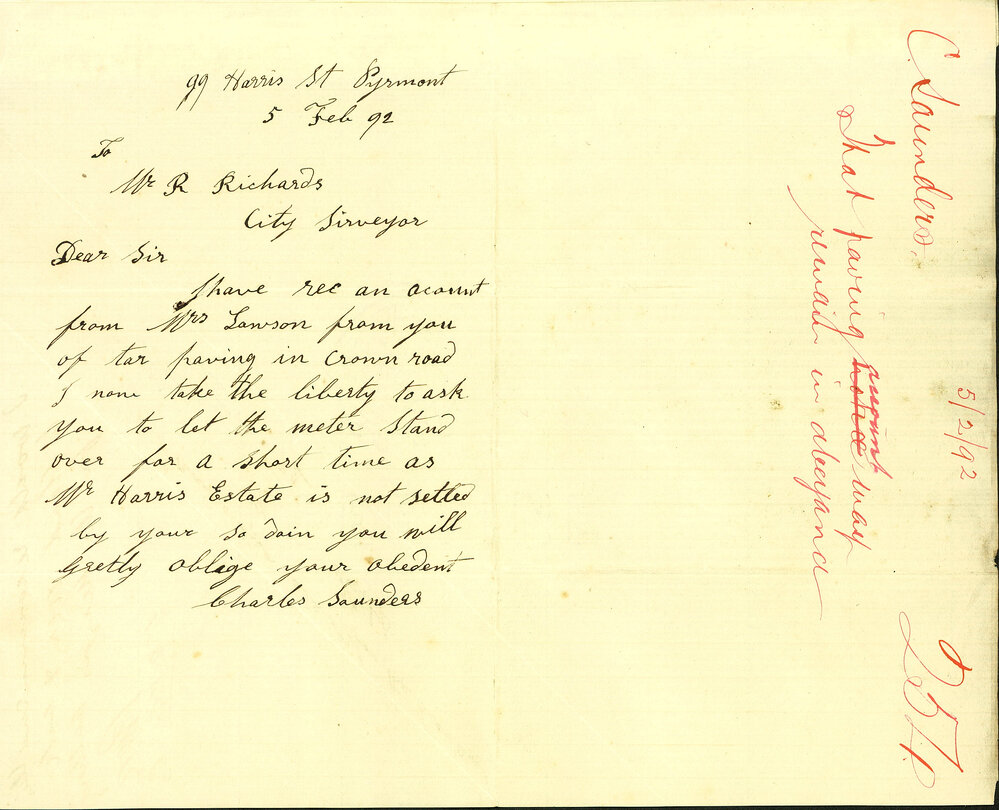 99 Harris St Pyrmont
5 Feb 92
To
Mr R Richards
City Sirveyor
Dear Sir
I have rec an acount
from Mrs Lawson from you
of tar paving in Crown road
I now take the liberty to ask
you to let the meter stand
over for a short time as
Mr Harris Estate is not setled
by your so doin you will
Gretly oblige your obedent
Charles Saunders
C. Saunders.
That paving amount may
remain in abeyance
5/2/92